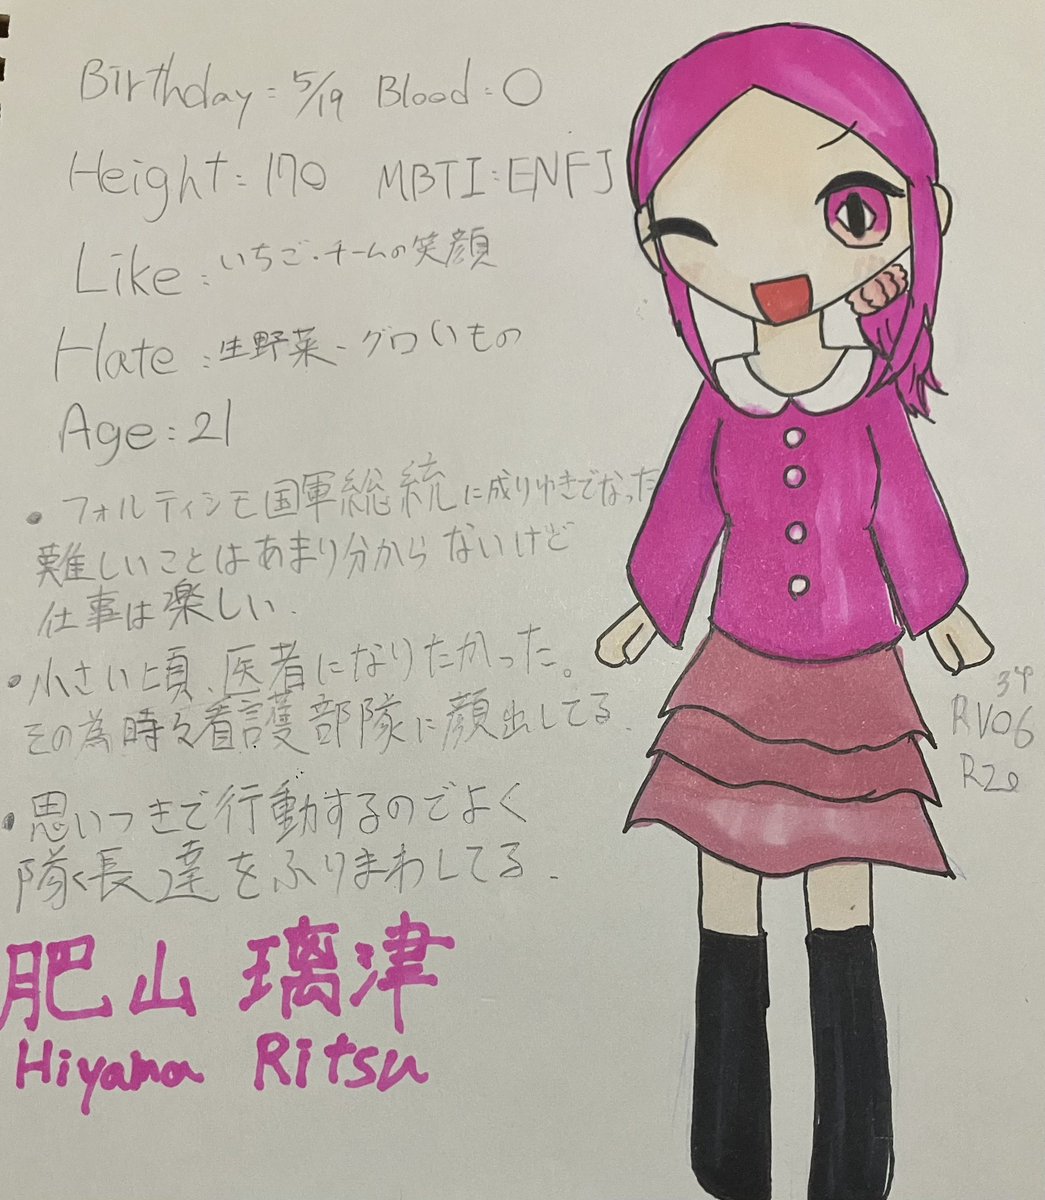 Birthday : 5/19 Blood : O
Height : 170 MBTI : ENFJ
Like : いちご・チームの笑顔
Hate : 生野菜・グロいもの
Age : 21
• フォルティシモ国軍総統に成りゆきでなった
難しいことはあまり分からないけど
仕事は楽しい.
• 小さい頃、医者になりたかった。
その為時々看護部隊に顔出してる.
• 思いつきで行動するのでよく
隊長達をふりまわしてる.
肥山 璃津
Hiyama Ritsu
RV06
R20